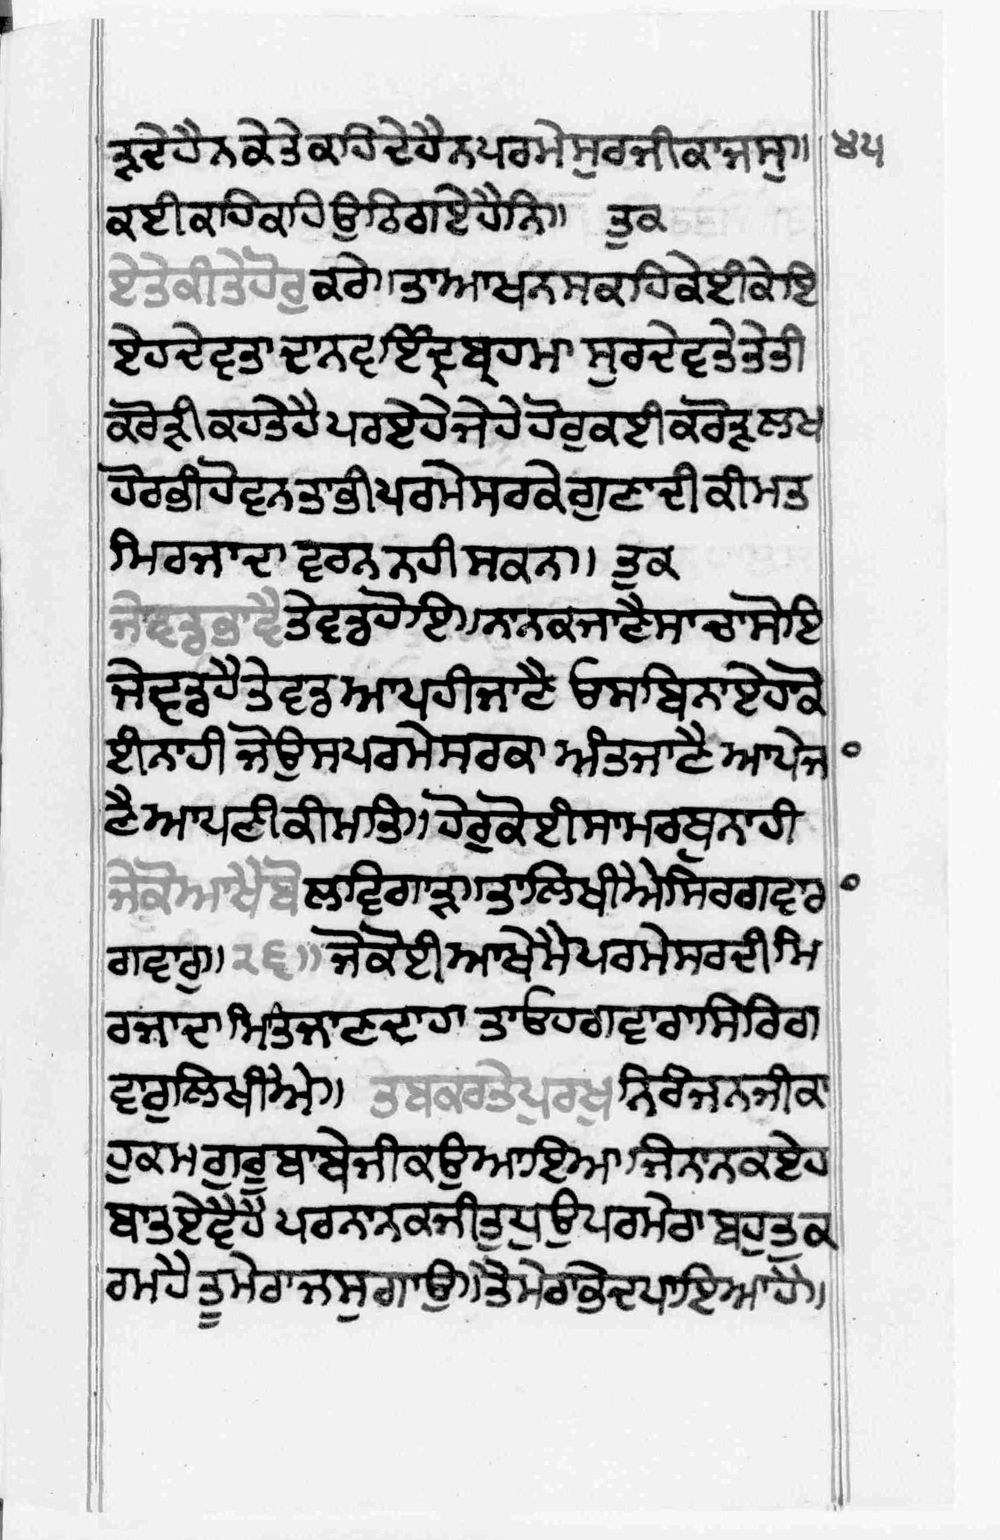 ੜਦੇ ਹੈਨ ਕੇਤੇ ਕਹਿਦੇ ਹੈਨ ਪਰਮੇਸੁਰ ਜੀ ਕਾ ਜਸੁ॥ ੪੫
ਕਈ ਕਹਿ ਕਹਿ ਉਠਿ ਗਏ ਹੈਨਿ॥ ਤੁਕ
ਏਤੇ ਕੀਤੇ ਹੋਰੁ ਕਰੇ॥ ਤਾ ਆਖ ਨ ਸਕਹਿ ਕੇਈ ਕੇਇ
ਏਹ ਦੇਵਤਾ ਦਾਨਵ ਇੰਦ੍ਰ ਬ੍ਰਹਮਾ ਸੁਰ ਦੇਵਤੇ ਤੇਤੀ
ਕਰੋੜੀ ਕਹਤੇ ਹੈ ਪਰ ਏਹੇ ਜੇਹੇ ਹੋਰੁ ਕਈ ਕਰੋੜ ਲਖ
ਹੋਰ ਭੀ ਹੋਵਨ ਤਾ ਭੀ ਪਰਮੇਸਰ ਕੇ ਗੁਣਾ ਦੀ ਕੀਮਤ
ਮਿਰਜਾਦਾ ਵਰਨ ਨਹੀ ਸਕਨਾ॥ ਤੁਕ
ਜੇਵਡੁ ਭਾਵੈ ਤੇਵਡੁ ਹੋਇ॥ ਨਾਨਕ ਜਾਣੈ ਸਾਚਾ ਸੋਇ
ਜੇਵਡੁ ਹੈ ਤੇਵਡੁ ਆਪ ਹੀ ਜਾਣੈ ਓਸ ਬਿਨਾ ਏਹਾ ਕੋ
ਈ ਨਾਹੀ ਜੋ ਉਸ ਪਰਮੇਸਰ ਕਾ ਅੰਤ ਜਾਣੈ ਆਪੇ ਜ °
ਣੈ ਆਪਣੀ ਕੀਮਤਿ॥ ਹੋਰੁ ਕੋਈ ਸਾਮਰਥੁ ਨਾਹੀ
ਜੇ ਕੋ ਆਖੈ ਬੋਲਾਵਿਗਾੜੁ॥ ਤਾ ਲਿਖੀਐ ਸਿਰ ਗਵਾਰ °
ਗਵਾਰੁ॥ ੨੬॥ ਜੋ ਕੋਈ ਆਖੇ ਮੈ ਪਰਮੇਸਰ ਦੀ ਮਿ
ਰਜਾਦਾ ਮਿਤ ਜਾਣਦਾ ਹਾ ਤਾ ਓਹ ਗਵਾਰਾ ਸਿਰਿ ਗ
ਵਾਰੁ ਲਿਖੀਐ॥ ਤਬ ਕਰਤੇ ਪੁਰਖੁ ਨਿਰੰਜਨ ਜੀ ਕਾ
ਹੁਕਮ ਗੁਰੂ ਬਾਬੇ ਜੀ ਕਉ ਆਇਆ ਜਿ ਨਾਨਕ ਏਹ
ਬਾਤ ਏਵੈ ਹੈ ਪਰ ਨਾਨਕ ਜੀ ਤੁਧੁ ਉਪਰ ਮੇਰਾ ਬਹੁਤੁ ਕ
ਰਮ ਹੈ ਤੂ ਮੇਰਾ ਜਸੁ ਗਾਉ॥ ਤੈ ਮੇਰਾ ਭੇਦ ਪਾਇਆ ਹੈ॥